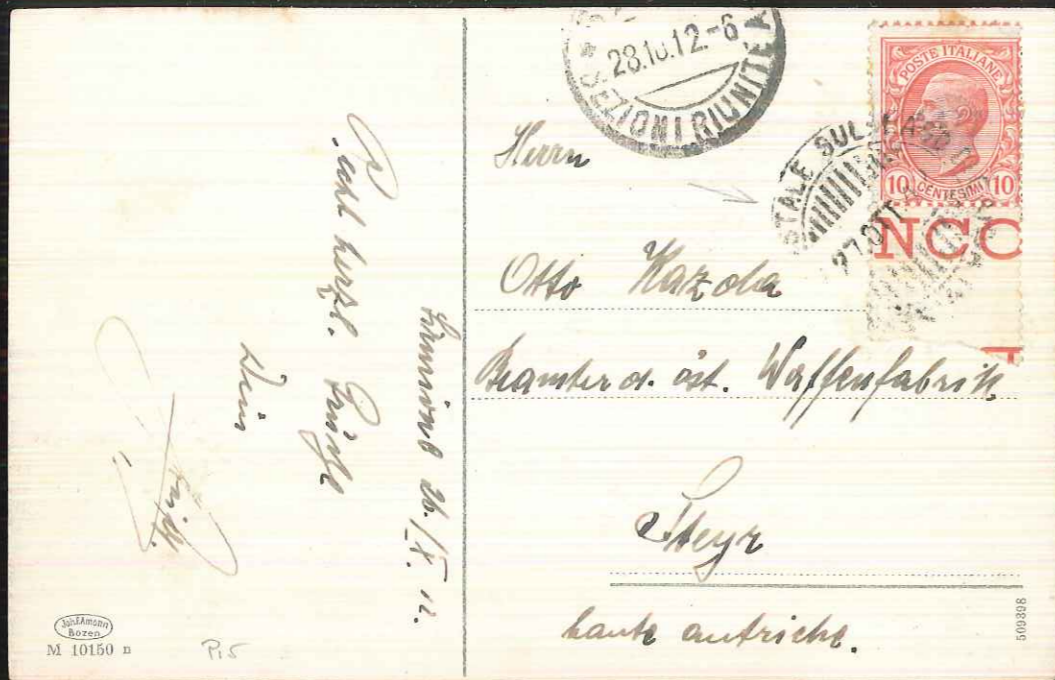 28.10.12-6
SEZIONI RIUNITE A
POSTE ITALIANE
10 CENTESIMI 10
STALE SUL
27.OTT
NCC
Herrn
Otto Kazda
Beamter d. öst. Waffenfabrik
Steyr
haute autriche.
26./X. 12.
recht herzl. Grüße
Dein
Joh.F.Amonn
Bozen
M 10150 n
P.5
509398